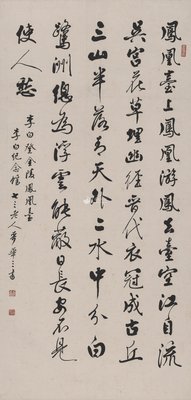 鳳凰臺上鳳凰游鳳去臺空江自流
吳宮花草埋幽徑晉代衣冠成古丘
三山半落青天外二水中分白
鷺洲總為浮雲能蔽日長安不見
使人愁
李白登金陵鳳凰臺
李白纪念館 七三老人